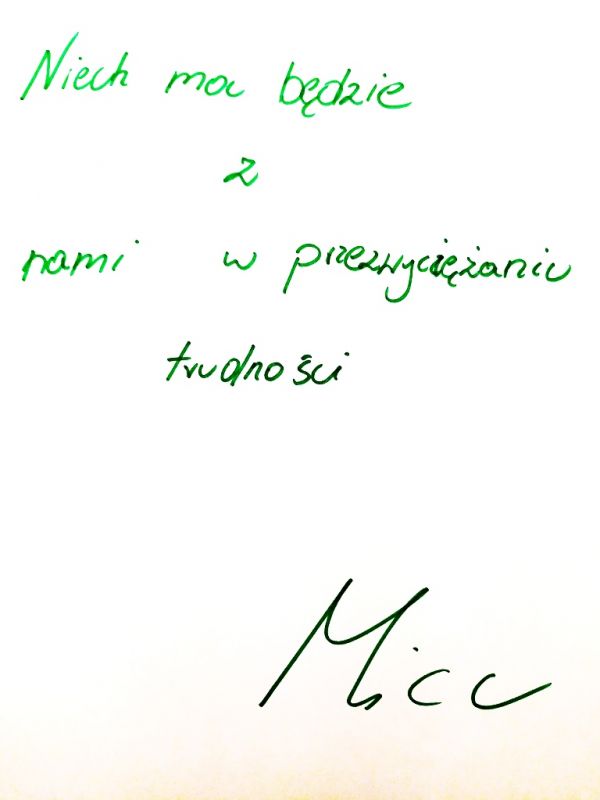 Niech moc będzie
z
nami w przezwyciężaniu
trudności